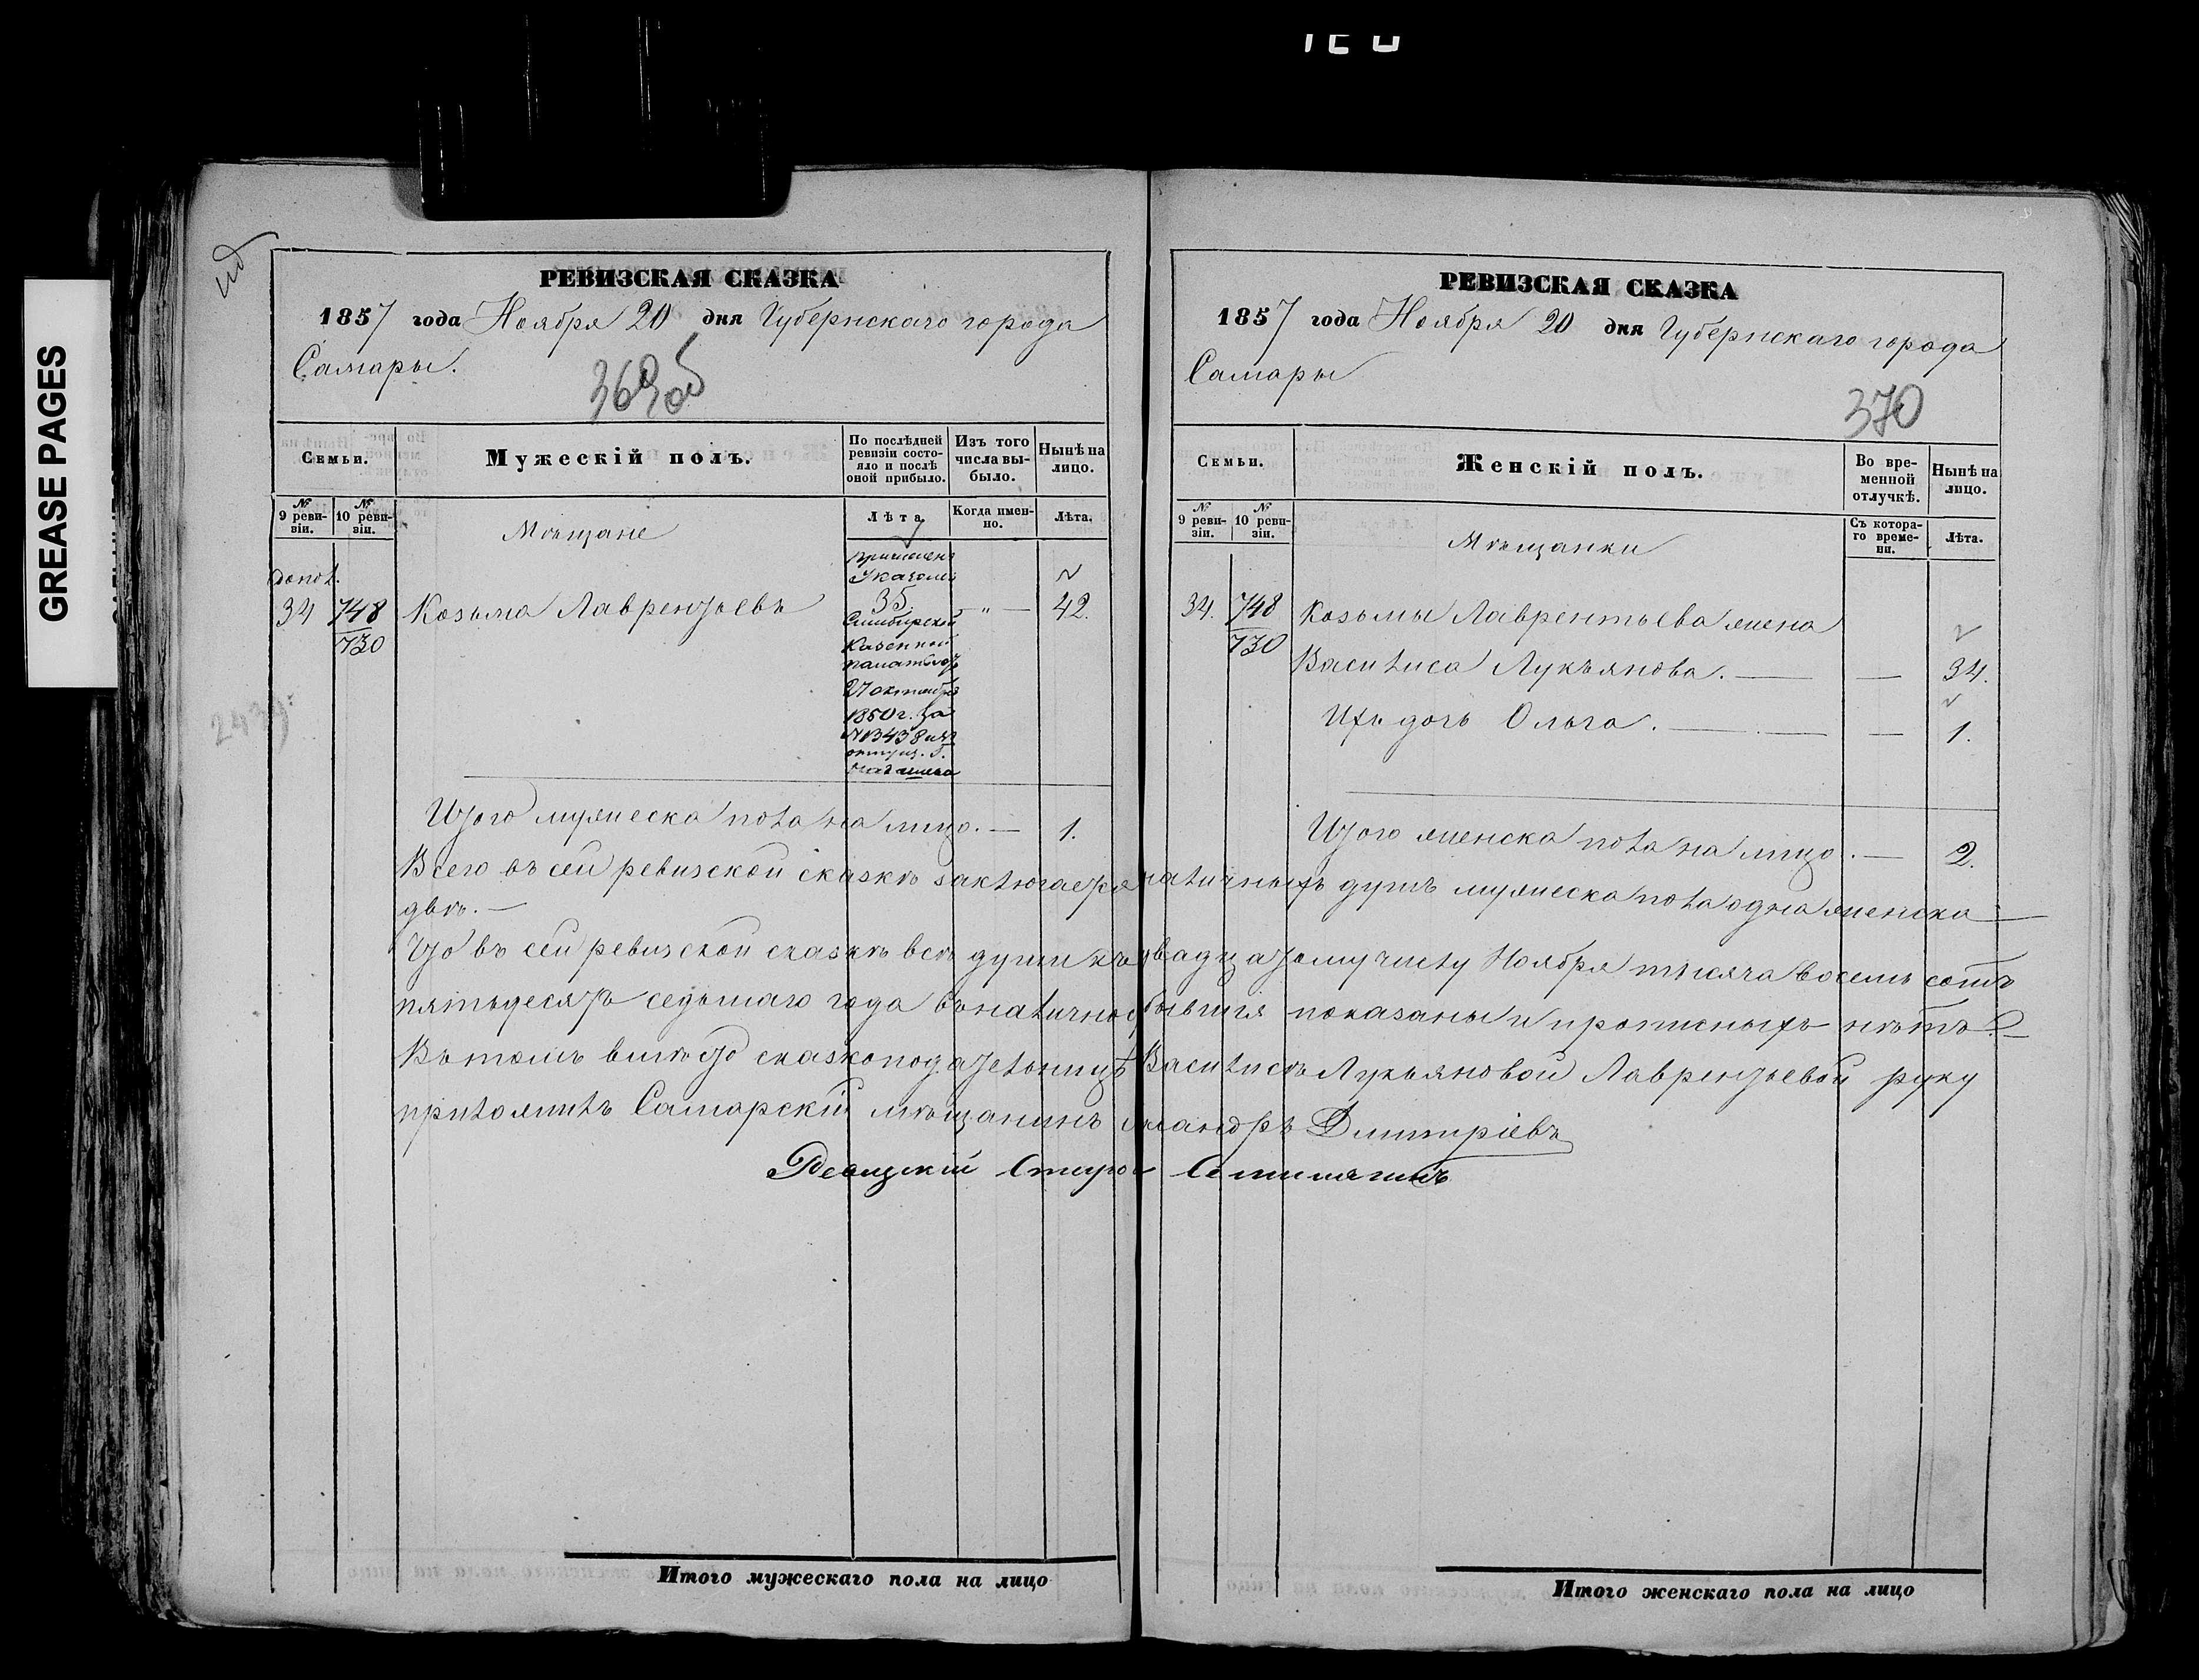 GREASE PAGES
РЕВИЗСКАЯ СКАЗКА
1857 года Ноября 20 дня Губернскаго города
Самары.
369 об
Семьи.
Мужескій полъ.
По послѣдней ревизіи состояло и послѣ оной прибыло.
Изъ того числа выбыло.
Нынѣ на лицо.
№ 9 ревизіи.
№ 10 ревизіи.
Мѣщане
Лѣта
Когда именно.
Лѣта.
допол.
34 748 Козьма Лаврентьевъ 35 — „ — 42.
730
причисленъ
Указомъ
Симбирской
Казенной
палаты отъ
27 октября
1850 г. за
Итого мужеска пола на лицо. — 1.
РЕВИЗСКАЯ СКАЗКА
1857 года Ноября 20 дня Губернскаго города
Самары
370
Семьи.
Женскій полъ.
Во временной отлучкѣ.
Нынѣ на лицо.
№ 9 ревизіи.
№ 10 ревизіи.
Мѣщанки
Съ котораго времени.
Лѣта.
34. 748 Козьмы Лаврентьева жена
730
Василиса Лукъянова. — — 34.
Ихъ дочь Ольга. — — 1.
Итого женска пола на лицо. — 2.
Всего въ сей ревизской сказкѣ заключается наличныхъ душъ мужеска пола одна женска —
двѣ. —
Что въ сей ревизской сказкѣ всѣ души къ двадцатому числу Ноября тысяча восемь сотъ
пятьдесятъ седьмаго года въ наличности бывшія показаны и прописныхъ нѣтъ —
Въ томъ вмѣсто сказкоподательницы Василисы Лукьяновой Лаврентьевой руку
приложилъ Самарскій мѣщанинъ Дмитріевъ
Итого мужескаго пола на лицо
Итого женскаго пола на лицо